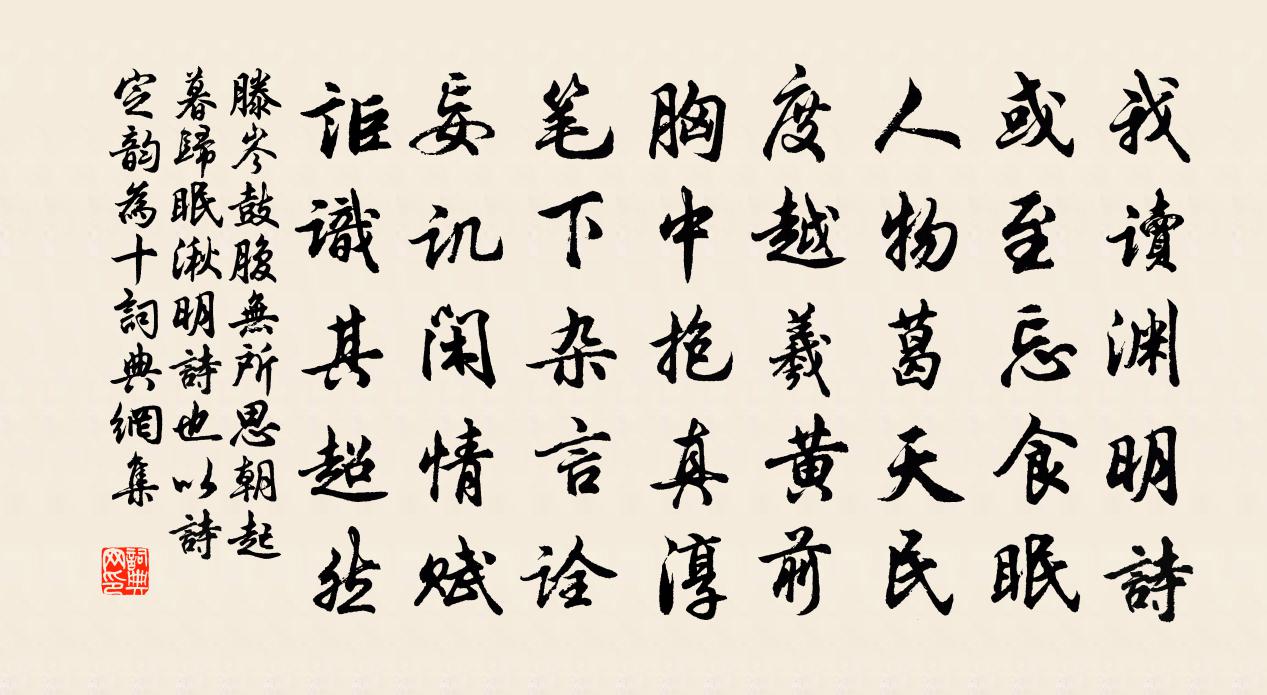 我讀渊明詩
或至忘食眠
人物葛天民
度越羲黄前
胸中抱真淳
笔下杂言诠
妄讥闲情赋
詎識其超然
滕岑鼓腹無所思朝起
暮歸眠湫明詩也以詩
定韵為十詞典網集
詞典
网印